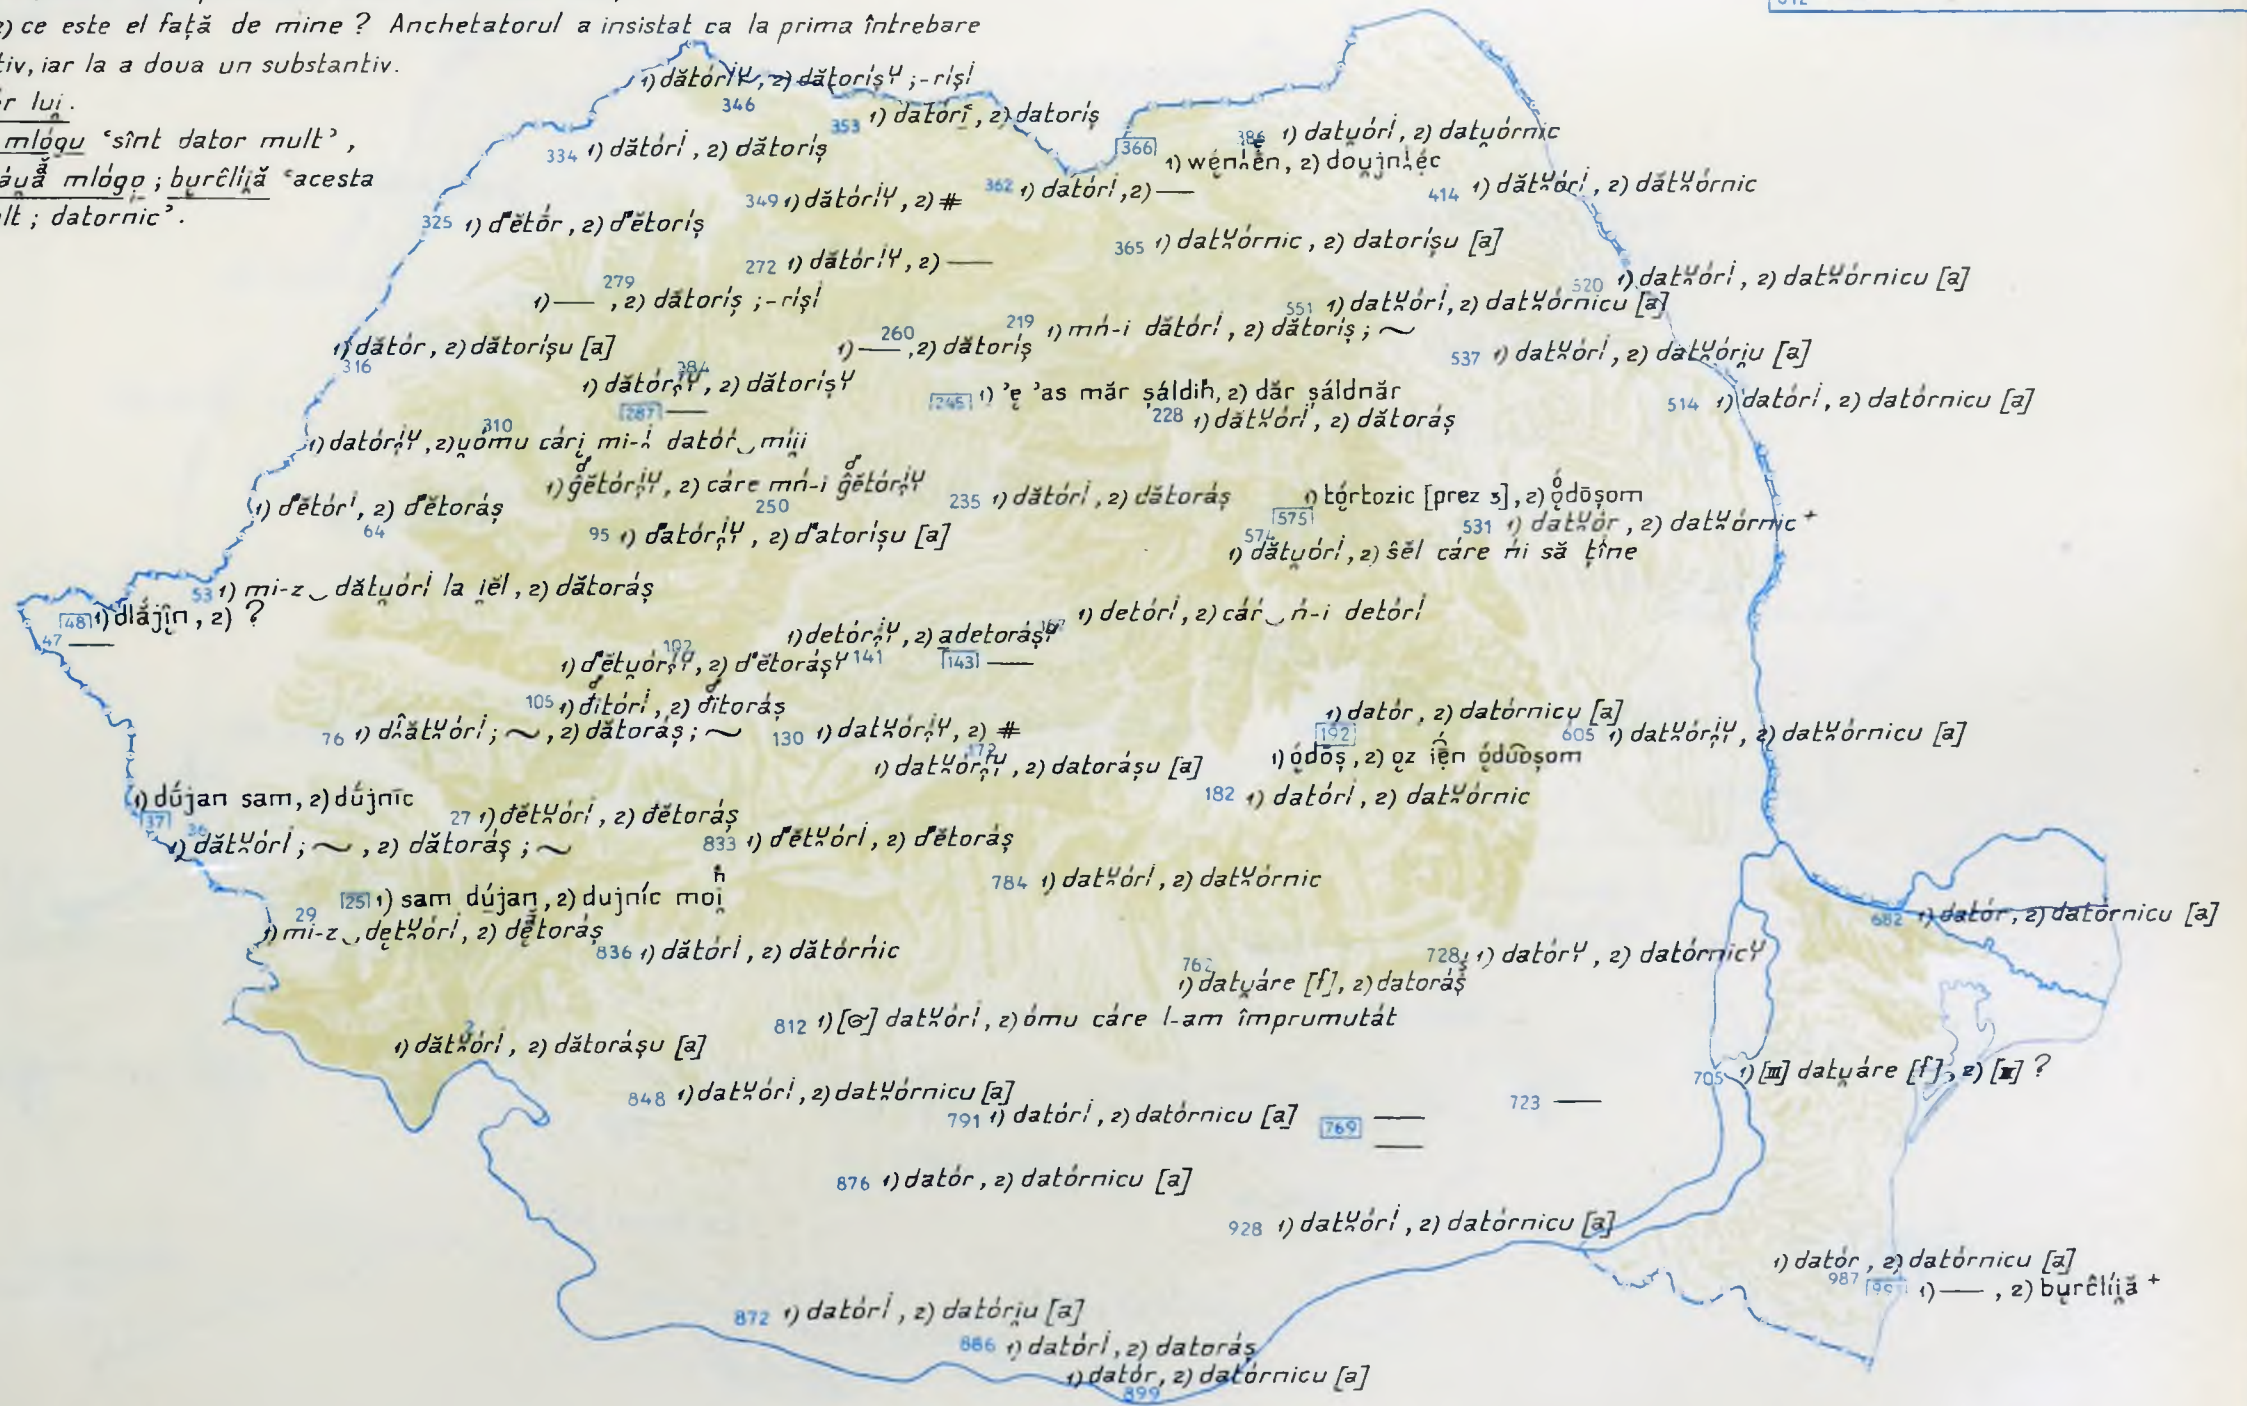 2) ce este el față de mine ? Anchetatorul a insistat ca la prima întrebare
tiv, iar la a doua un substantiv.
r lui̯.
mlógu ‘sînt dator mult’,
mlógo ; burĉlíi̯ă ‘acesta
lt ; datornic’.
612
1) dătórⁱᵘ̯, 2) dătoríșᵘ ; -ríșⁱ
346
353 1) datórⁱ, 2) datoríș
334 1) dătórⁱ, 2) dătoríș
386 1) datu̯órⁱ, 2) datu̯órnic
366 1) wénʹĕn, 2) dou̯jnʹéc
349 1) dătórⁱᵘ̯, 2) #
362 1) datórⁱ, 2) —
414 1) dătᵘ̯órⁱ, 2) dătᵘ̯órnic
325 1) d'ĕtór, 2) d'ĕtoríș
365 1) datᵘ̯órnic, 2) datoríșu [a]
272 1) dătórⁱᵘ̯, 2) —
279
1) — , 2) dătoríș ; -ríșⁱ
520 1) datᵘ̯órⁱ, 2) datᵘ̯órnicu [a]
551 1) datᵘ̯órⁱ, 2) datᵘ̯órnicu [a]
219 1) mń-i dătórⁱ, 2) dătoríș ; ~
316 1) dătór, 2) dătoríșu [a]
260 1) — , 2) dătoríș
537 1) datᵘ̯órⁱ, 2) datᵘ̯óri̯u [a]
284 1) dătórⁱᵘ̯, 2) dătoríșᵘ
287 —
245 1) 'ę 'as măr șáldih, 2) dăr șáldnăr
228 1) dătᵘ̯órⁱ, 2) dătoráș
514 1) datórⁱ, 2) datórnicu [a]
310
1) datórⁱᵘ̯, 2) u̯ómu cári̯ mi-ⁱ datór‿míi̯i
1) ĝĕtórⁱᵘ̯, 2) cáre mń-i ĝĕtórⁱᵘ̯
250
235 1) dătórⁱ, 2) dătoráș
1) tórtozic [prez 3], 2) ọ́dōșom
575
64 1) d'ĕtórⁱ, 2) d'ĕtoráș
95 1) d'atórⁱᵘ̯, 2) d'atoríșu [a]
531 1) datᵘ̯ór, 2) datᵘ̯órnic +
574 1) dătu̯órⁱ, 2) ŝĕl cáre ńi să țîne
53 1) mi-z‿dătu̯órⁱ la i̯ĕl, 2) dătoráș
48 1) dlắjîn, 2) ?
47 —
1) detórⁱ, 2) cár‿ń-i detórⁱ
1) detórⁱᵘ̯, 2) adetoráșᵘ
141
143 —
102 1) d'ĕtu̯órⁱᵘ̯, 2) d'ĕtoráșᵘ
105 1) đitórⁱ, 2) đitoráș
76 1) dî̯ătᵘ̯órⁱ ; ~, 2) dătoráș ; ~
130 1) datᵘ̯órⁱᵘ̯, 2) #
1) datór, 2) datórnicu [a]
192
605 1) datᵘ̯órⁱᵘ̯, 2) datᵘ̯órnicu [a]
172 1) datᵘ̯órⁱᵘ̯, 2) datorášu [a]
1) ọ́dōș, 2) ọz i̯ện ọ́du͡oșom
37 1) dújan sam, 2) dújnīc
27 1) đĕtᵘ̯órⁱ, 2) đĕtoráș
182 1) datórⁱ, 2) datᵘ̯órnic
36 1) dătᵘ̯órⁱ ; ~, 2) dătoráș ; ~
833 1) d'ĕtᵘ̯órⁱ, 2) d'ĕtoráș
784 1) datᵘ̯órⁱ, 2) datᵘ̯órnic
25 1) sam dújan, 2) dujníc moi̯
29
1) mi-z‿dętᵘ̯órⁱ, 2) dętoráș
836 1) dătórⁱ, 2) dătórńic
682 1) datór, 2) datórnicu [a]
728 1) datórᵘ, 2) datórnicᵘ
762
1) datu̯áre [f], 2) datoráș
812 1) [ⱺ] datᵘ̯órⁱ, 2) ómu cáre l-am împrumutát
2
1) dătᵘ̯órⁱ, 2) dătorášu [a]
705 1) [III] datu̯áre [f], 2) [II] ?
848 1) datᵘ̯órⁱ, 2) datᵘ̯órnicu [a]
791 1) datórⁱ, 2) datórnicu [a]
769 —
—
723 —
876 1) datór, 2) datórnicu [a]
928 1) datᵘ̯órⁱ, 2) datórnicu [a]
1) datór, 2) datórnicu [a]
987
1) — , 2) burĉlíi̯ă +
872 1) datórⁱ, 2) datóri̯u [a]
886 1) datórⁱ, 2) datoráș
1) datór, 2) datórnicu [a]
899